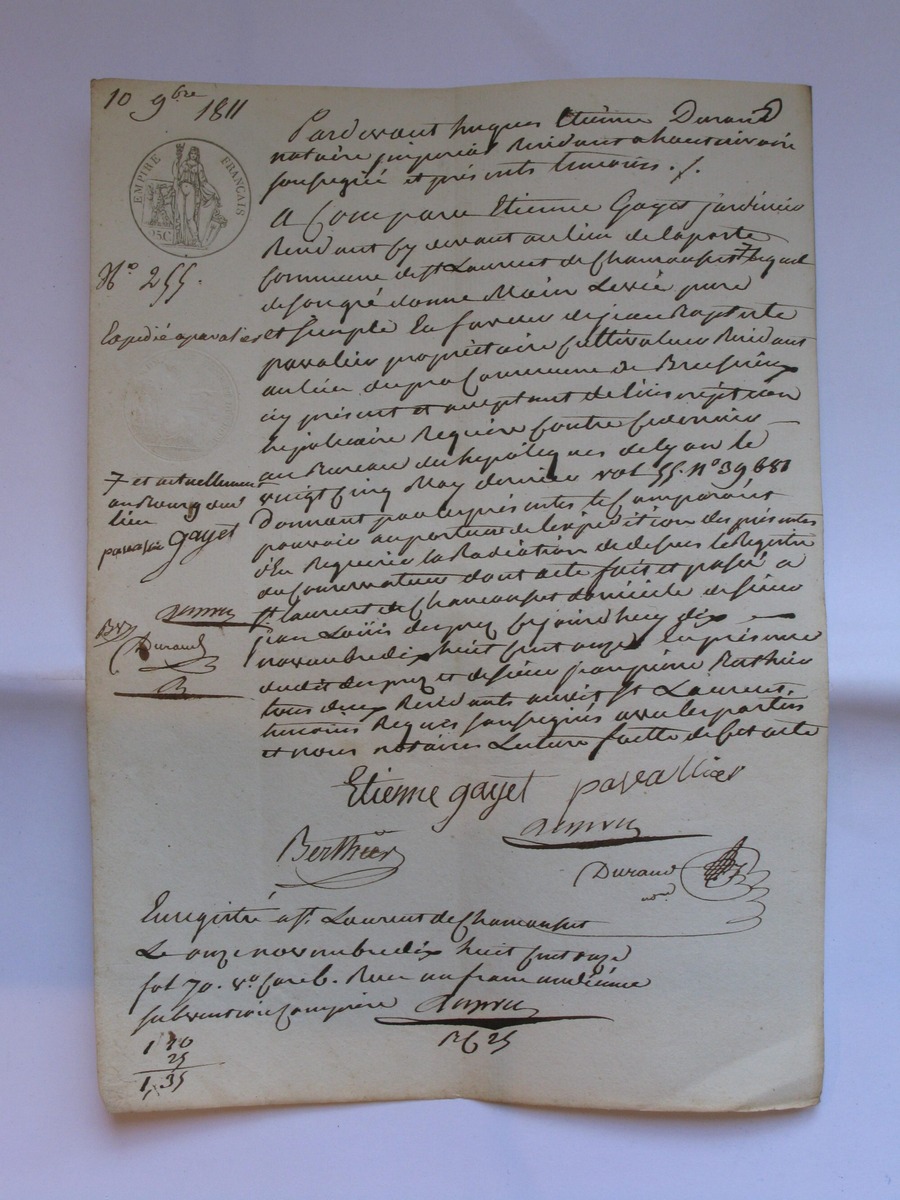 10 9bre 1811
EMPIRE FRANÇAIS
25C
No 255.
Expedié a pavalier
7 et actuellement
au Bourg dud
lieu
pavalier gayet
Durand
Pardevant hugues Etienne Durand
notaire imperial Residant a hauterivoire
soussigné et présents temoins ./.
A Comparu Etienne Gayet jardinier
Résidant cy devant au lieu de laporte
Commune de st Laurent de Chamousset 7 lequel
de son gré donne Main Levée pure
et simple En faveur de jean Baptiste
pavalier propriétaire Cultivateur Résidant
au lieu du Commune de Brussieux
icy présent et acceptant de l'inscription
hepotécaire Requise contre Ce dernier
au Bureau des hepoteques de lyon le
vingt Cinq May dernier vol 55. no 39681
Donnant par les présentes le Comparant
pouvoir au porteur de l'expédition des présentes
d'En Requerir la Radiation de dessus le Registre
du Conservateur dont acte fait et passé a
st. laurent de Chamousset domicile de sieur
jean Loüis desprez cejourd'huy dix
novembre dix huit cent onze En présence
dudit desprez et de sieur jean pierre Berthier
tous deux Résidants audit st. Laurent,
temoins Requis soussignés avec les parties
et nous notaire Lecture faitte de cet acte
Etienne gayet pavallier
Berthier
Durand
nore
Enregistré a st. Laurent de Chamousset
Le onze novembre dix huit cent onze
fol 70. vo Case 6. Reçu un franc dix centimes
subvention Comprise
1 10
25
1,35
25